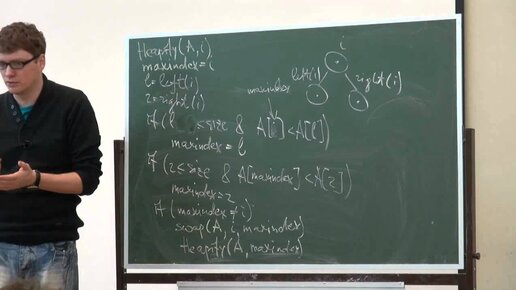 Heapify(A, i)
maxindex = i
l = left(i)
r = right(i)
if (l ≤ size & A[ ] < A[l])
maxindex
maxindex = l
if (r ≤ size & A[maxindex] < A[r])
maxindex = r
if (maxindex ≠ i)
swap(A, i, maxindex)
Heapify(A, maxindex)
i
left(i)
right(i)